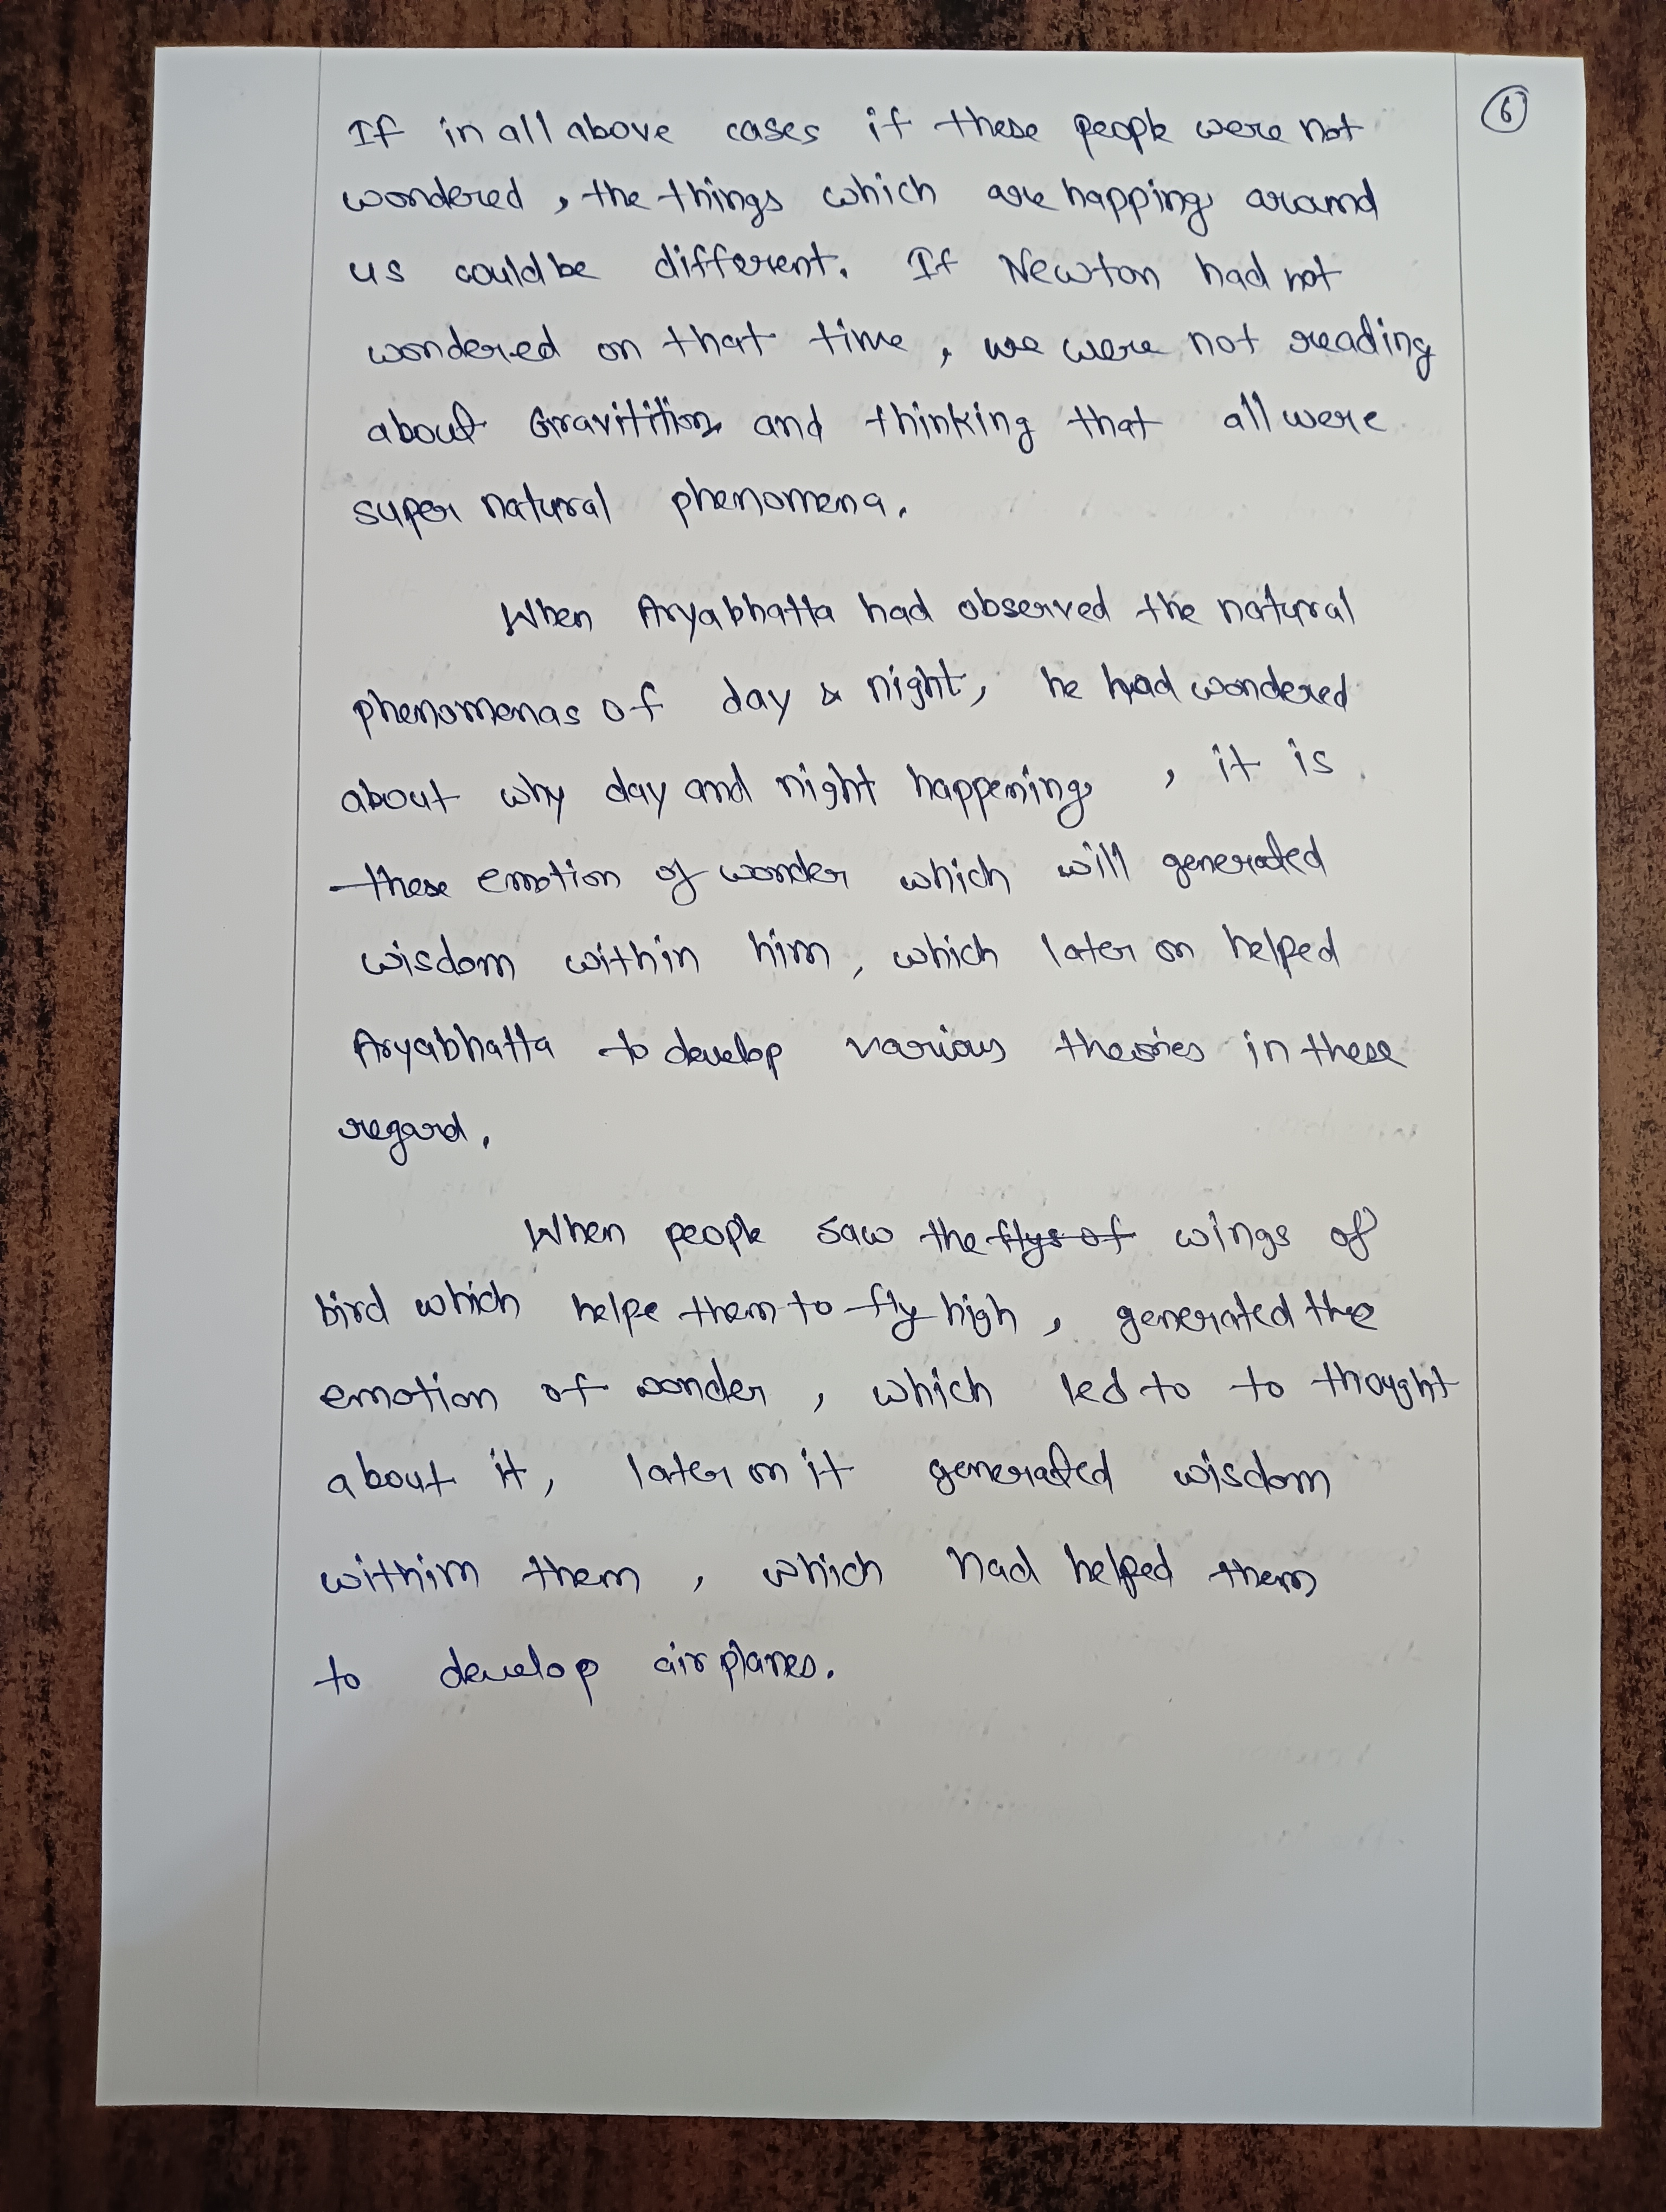 6
If in all above cases if these people were not
wondered, the things which are happing around
us could be different. If Newton had not
wondered on that time, we were not reading
about Gravitition and thinking that all were
super natural phenomena.
When Aryabhatta had observed the natural
phenomenas of day & night, he had wondered
about why day and night happening, it is
these emotion of wonder which will generated
wisdom within him, which later on helped
Aryabhatta to develop various theories in these
regard.
When people saw the flys of wings of
bird which helpe them to fly high, generated the
emotion of wonder, which led to to thought
about it, later on it generated wisdom
within them, which had helped them
to develop airplanes.